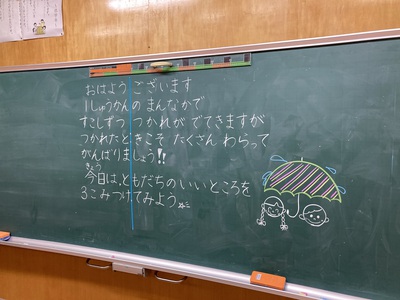 おはよう ございます
1しゅうかんの まんなかで
すこしずつ つかれが でてきますが
つかれたときこそ たくさん わらって
がんばりましょう!!
きょう
今日は、ともだちの いいところを
3こみつけてみよう。